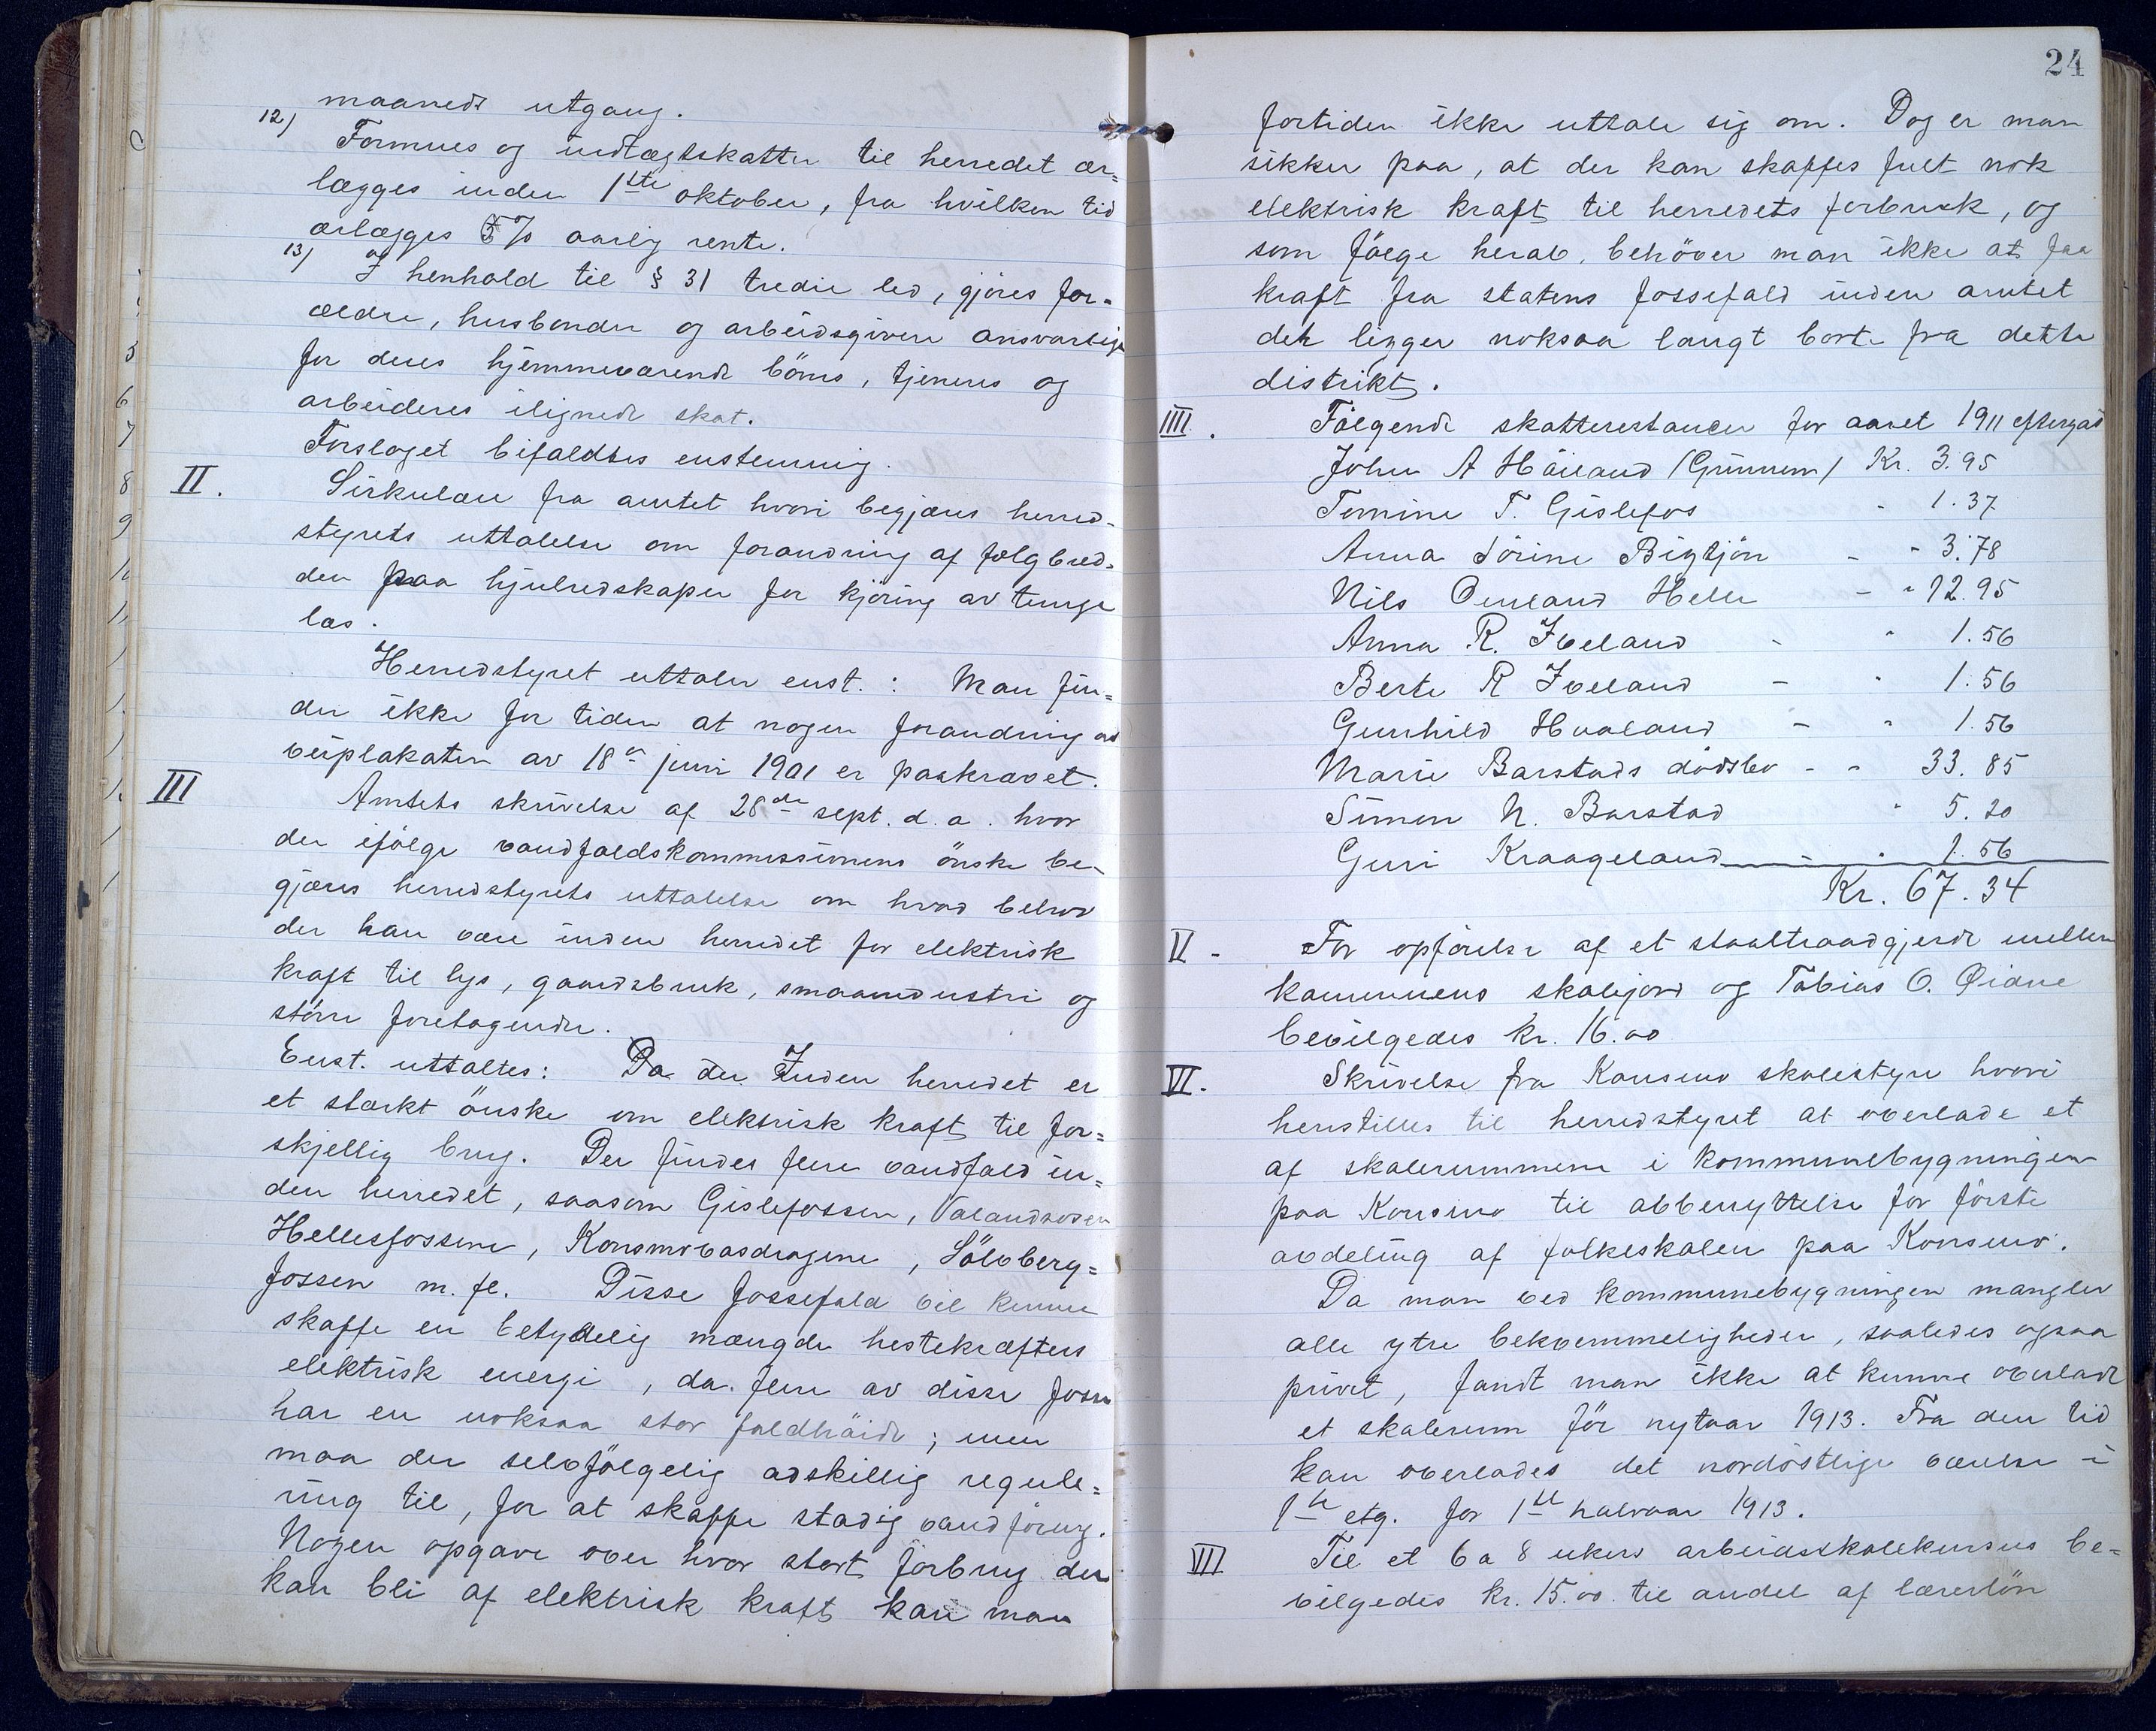 maaneds utgang.
12) Formues og indtægtskatten til herredet er=
lægges inden 1ste oktober, fra hvilken tid
erlægges 5% aarlig rente.
13) I henhold til § 31 tredie led, gjöres for=
ældre, husbonder og arbeidsgivere ansvarlige
for deres hjemmeværende börns, tjeneres og
arbeideres ilignede skat.
Forslaget bifaldtes enstemmig.
II. Sirkulære fra amtet hvori begjæres herred-
styrets uttalelse om forandring af fælgbred-
den paa hjulredskaper for kjöring av tunge
læs.
Herredstyret uttaler enst.: Man fin=
der ikke for tiden at nogen forandring av
veiplakaten av 18de juni 1901 er paakrævet.
III Amtets skrivelse af 28de sept. d. a. hvor
der ifölge vandfaldskommissionens önske be-
gjæres herredstyrets uttalelse om hvad behov
der kan være inden herredet for elektrisk
kraft til lys, gaardsbruk, smaaindustri og
större foretagender.
Enst. uttaltes: Da der Inden herredet er
et stærkt önske om elektrisk kraft til for=
skjellig brug. Der findes flere vandfald in=
den herredet, saasom Gislefossen, Valandsosen
Hellesfossene, Konsmovasdragene, Sölvberg=
fossen m. fl. Disse fossefald vil kunne
skaffe en betydelig mængde hestekræfters
elektrisk energi, da flere av disse fosse
har en noksaa stor faldhöide; men
maa der selvfölgelig adskillig regule=
ring til, for at skaffe stadig vandföring.
Nogen opgave over hvor stort forbrug der
kan bli af elektrisk kraft kan man
24
fortiden ikke uttale sig om. Dog er man
sikker paa, at der kan skaffes fult nok
elektrisk kraft til herredets forbruk, og
som fölge herav, behöver man ikke at faa
kraft fra statens fossefald inden amtet
det ligger noksaa langt borte fra dette
distrikt.
IIII. Fölgende skatterestancer for aaret 1911 eftergat
John A Höiland (Grinnem) Kr. 3.95
Tomine T. Gislefos " 1.37
Anna Sörine Bigtjön - " 3.78
Nils Omland Helle - " 12.95
Anna R. Iveland - " 1.56
Berte R Iveland - " 1.56
Gunhild Haaland - " 1.56
Marie Barstads dödsbo - - 33.85
Simon N. Barstad " 5.20
Guri Kraageland - " 1.56
Kr. 67.34
V - For opförelse af et staaltraadgjerde mellem
kommunens skolejord og Tobias O. Øidne
bevilgedes kr. 16.00
VI. Skrivelse fra Konsmo skolestyre hvori
henstilles til herredstyret at overlade et
af skolerummene i kommunebygningen
paa Konsmo til abbenyttelse for förste
avdeling af folkeskolen paa Konsmo.
Da man ved kommunebygningen mangler
alle ytre bekvemmeligheder, saaledes ogsaa
privet, fandt man ikke at kunne overlade
et skolerum för nytaar 1913. Fra den tid
kan overlades det nordöstlige værelse i
1ste etg. for 1ste halvaar 1913.
VII Til et 6 a 8 ukers arbeidsskolekursus be=
vilgedes kr. 15.00 til andel af lærerlön